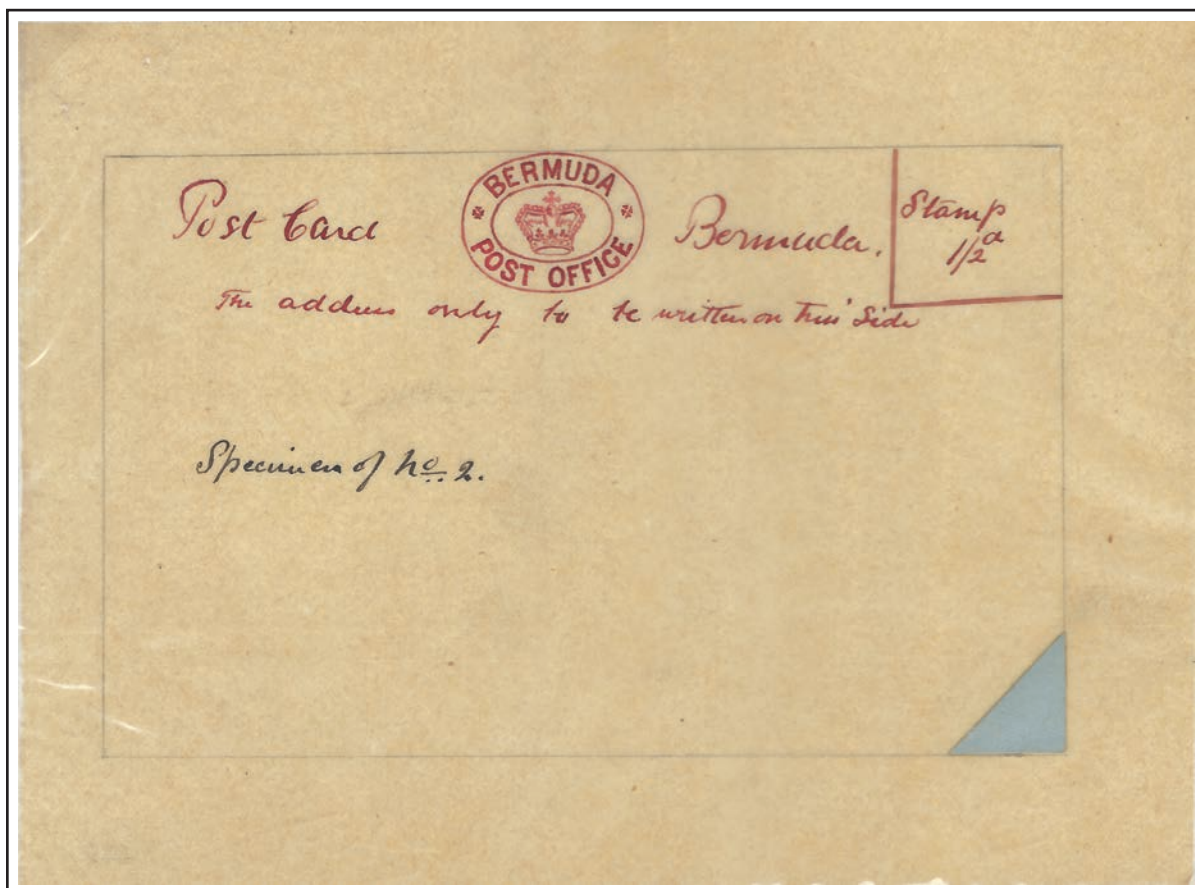 Post Card
BERMUDA
POST OFFICE
Bermuda.
Stamp
1/2d
The address only to be written on this Side
Specimen of No. 2.